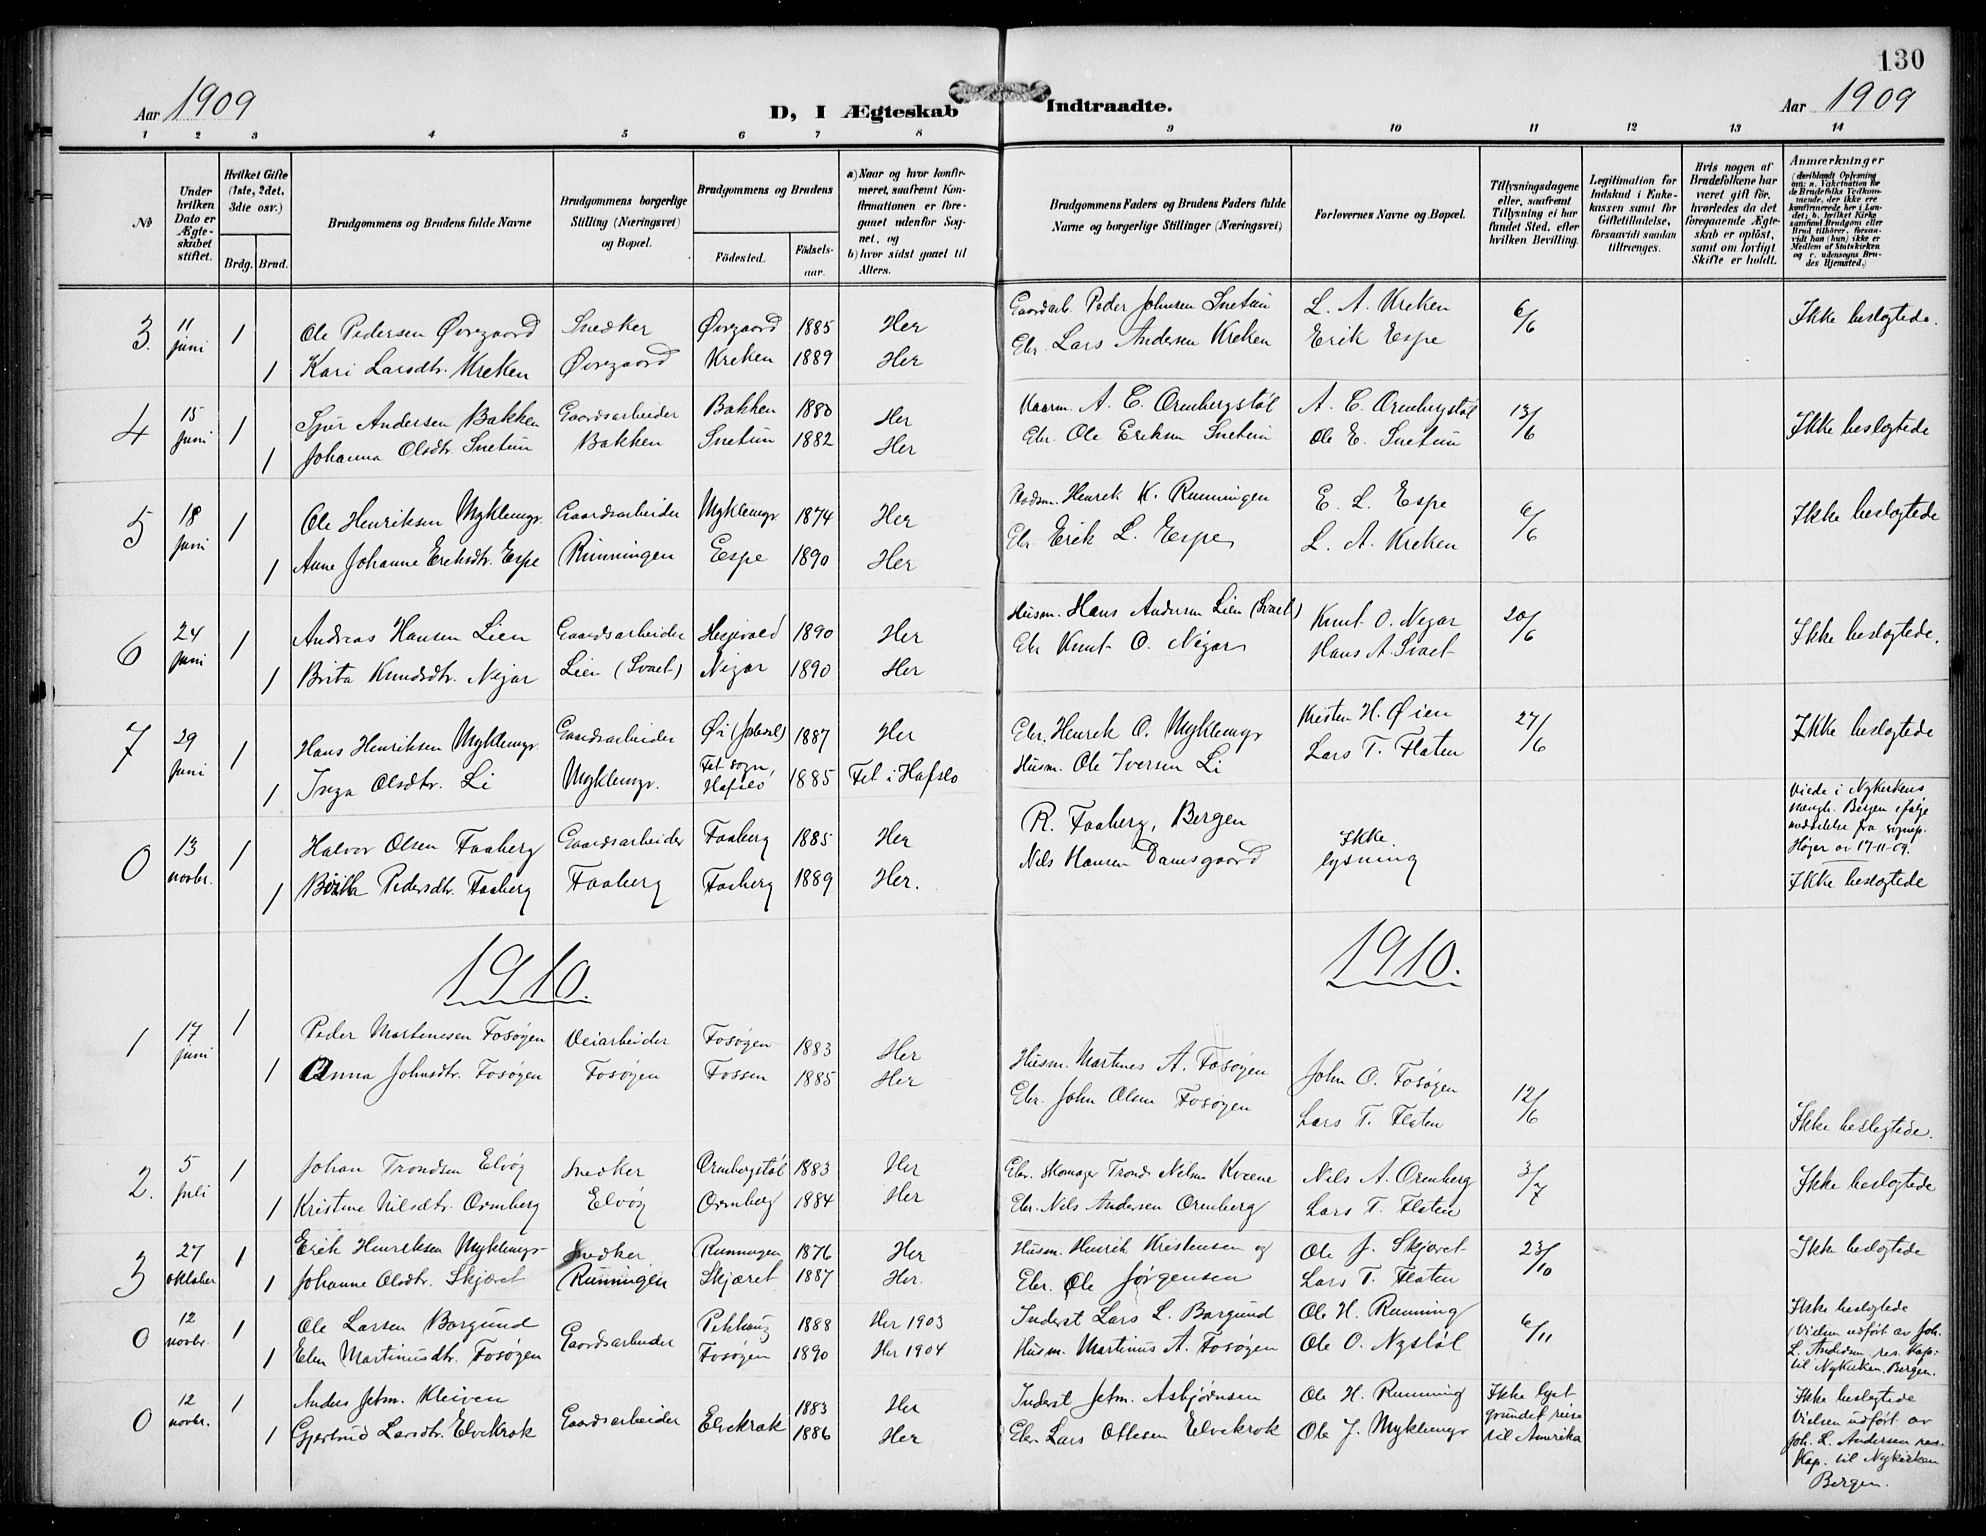 130
Aar 1909
D, I Ægteskab Indtraadte.
Aar 1909
1 2 3 4 5 6 7 8 9 10 11 12 13 14
No
Under hvilken Dato er Ægteskabet stiftet.
Hvilket Gifte (1ste, 2det, 3die osv.)
Brdg. Brud.
Brudgommens og Brudens fulde Navne
Brudgommens borgerlige Stilling (Næringsvei) og Bopæl.
Brudgommens og Brudens
Födested. Födselsaar.
a) Naar og hvor konfirmeret, saafremt Konfirmationen er foregaaet udenfor Sognet, og
b) hvor sidst gaaet til Alters.
Brudgommens Faders og Brudens Faders fulde Navne og borgerlige Stillinger (Næringsvei)
Forlovernes Navne og Bopæl.
Tillysningsdagene eller, saafremt Tillysning ei har fundet Sted, efter hvilken Bevilling.
Legitimation for Indskud i Enkekassen samt for Giftetilladelse, forsaavidt saadan tiltrænges.
Hvis nogen af Brudefolkene har været gift för, hvorledes da det foregaaende Ægteskab er oplöst, samt om lovligt Skifte er holdt.
Anmærkninger (deriblandt Oplysning om: a. Vakcination for de Brudefolks Vedkommende, der ikke ere konfirmerede her i Landet; b. hvilket Kirkesamfund Brudgom eller Brud tilhörer, forsaavidt han (hun) ikke er Medlem af Statskirken og c. udensogns Brudes Hjemsted.)
3. 11 juni 1 Ole Pedersen Øvregaard Snedker Øvregaard 1885 Her Gaardarb. Peder Johnsen Snetun L. A. Kreken 6/6 Ikke beslegtede.
1 Kari Larsdtr. Kreken Øvregaard Kreken 1889 Her Gbr. Lars Andersen Kreken Erik Espe
4 15 juni 1 Sjur Andersen Bakken Gaardsarbeider Bakken 1880 Her A. E. Ormbergstøl A. E. Ormbergstøl 13/6 Ikke beslegtede
1 Johanna Olsdtr. Snetun Bakken Snetun 1882 Her Gbr. Ole Eriksen Snetun Ole E. Snetun
5 18 juni 1 Ole Henriksen Myklemyr. Gaardsarbeider Myklemyr 1874 Her Henrek K. Runningen E. L. Espe 6/6 Ikke beslegtede
1 Anne Johanne Eriksdtr. Espe Runningen Espe 1890 Her Gbr. Erik L. Espe L. A. Kreken
6 24 juni 1 Andreas Hansen Lien Gaardsarbeider 1890 Her Husm. Hans Andersen Lien (Svaet) Knut O. Nigar 20/6 Ikke beslegtede.
1 Brita Knudsdtr. Nigar Lien (Svaet) Nigar 1890 Her Gbr Knut O. Nigar Hans A. Svaet
7 29 juni 1 Hans Henriksen Myklemyr. Gaardsarbeider Øi 1887 Her Gbr. Henrik O. Myklemyr Kristen H. Øien 27/6 Ikke beslegtede
1 Inga Olsdtr. Li Myklemyr. Fet sogn, Hafslo 1885 Fet i Hafslo Husm. Ole Iversen Li Lars T. Flaten
0 13 novbr. 1 Halvor Olsen Faaberg Gaardsarbeider Faaberg 1885 Her R. Faaberg, Bergen Ikke lysning Viede i Nykirkens menigh. Bergen ifølge meddelelse fra sognep. Høyer av 17-11-09.
1 Brita Pedersdtr. Faaberg Faaberg Faaberg 1889 Her. Nils Hansen Damsgaard Ikke beslegtede
1910. 1910.
1 17 juni 1 Peder Martinesen Fosøgen Veiarbeider Fosøgen 1883 Her Husm. Martines A. Fosøgen John O. Fosøgen 12/6
1 Anna Johnsdtr. Fosøgen Fosøgen Fossen 1885 Her Gbr. John Olsen Fosøgen Lars T. Flaten Ikke beslegtede.
2. 5 juli 1 Johan Trondsen Elvøy Snedker Ormbergstøl 1883 Her Gbr. skomager Trond Nilsen Kvæne Nils A. Ormberg 3/7 Ikke beslegtede
1 Kristine Nilsdtr. Ormberg Elvøy Ormberg 1884 Her Gbr. Nels Andersen Ormberg Lars T. Flaten
3 27 oktober 1 Erik Henriksen Myklemyr Snedker Runningen 1876 Her Husm. Henrik Kristensen og Ole J. Skjæret 23/10 Ikke beslegtede
1 Johanne Olsdtr. Skjæret Runningen Skjæret 1887 Her. Gbr. Ole Jørgensen Lars T. Flaten
0 12 novbr. 1 Ole Larsen Borgund Gaardsarbeider 1888 Her 1903 Inderst Lars L. Borgund Ole H. Running 6/11 Ikke beslegtede
1 Elen Martinusdtr. Fosøgen Fosøgen 1890 Her 1904 Husm. Martinus A. Fosøgen Ole O. Nystøl (Vielsen udført av Joh. L. Andersen res. Kap: til Nykirken. Bergen.
0 12 novbr. 1 Anders Jetm. Kleiven Gaardsarbeider Elvekrok 1883 Her Inderst Jetm. Asbjørnsen Ole H. Running Ikke lyst grundet reise til Amerika Ikke beslegtede
1 Gjertrud Larsdtr. Elvekrok 1886 Her Gbr. Lars Ottesen Elvekrok Ole J. Myklemyr Vielsen udført av Joh. L. Andersen res. Kap. til Nykirken Bergen.